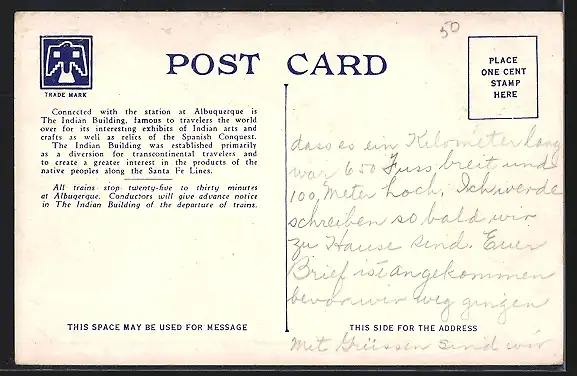 50
POST CARD
TRADE MARK
PLACE
ONE CENT
STAMP
HERE
Connected with the station at Albuquerque is
The Indian Building, famous to travelers the world
over for its interesting exhibits of Indian arts and
crafts as well as relics of the Spanish Conquest.
The Indian Building was established primarily
as a diversion for transcontinental travelers and
to create a greater interest in the products of the
native peoples along the Santa Fe Lines.
All trains stop twenty-five to thirty minutes
at Albuquerque. Conductors will give advance notice
in The Indian Building of the departure of trains.
THIS SPACE MAY BE USED FOR MESSAGE
dass es ein Kilometer lang
war 650 Fuss breit und
100 Meter hoch. Ich werde
schreiben so bald wir
zu Hause sind. Euer
Brief ist angekommen
bevor wir weg gingen
THIS SIDE FOR THE ADDRESS
Mit Grüssen sind wir